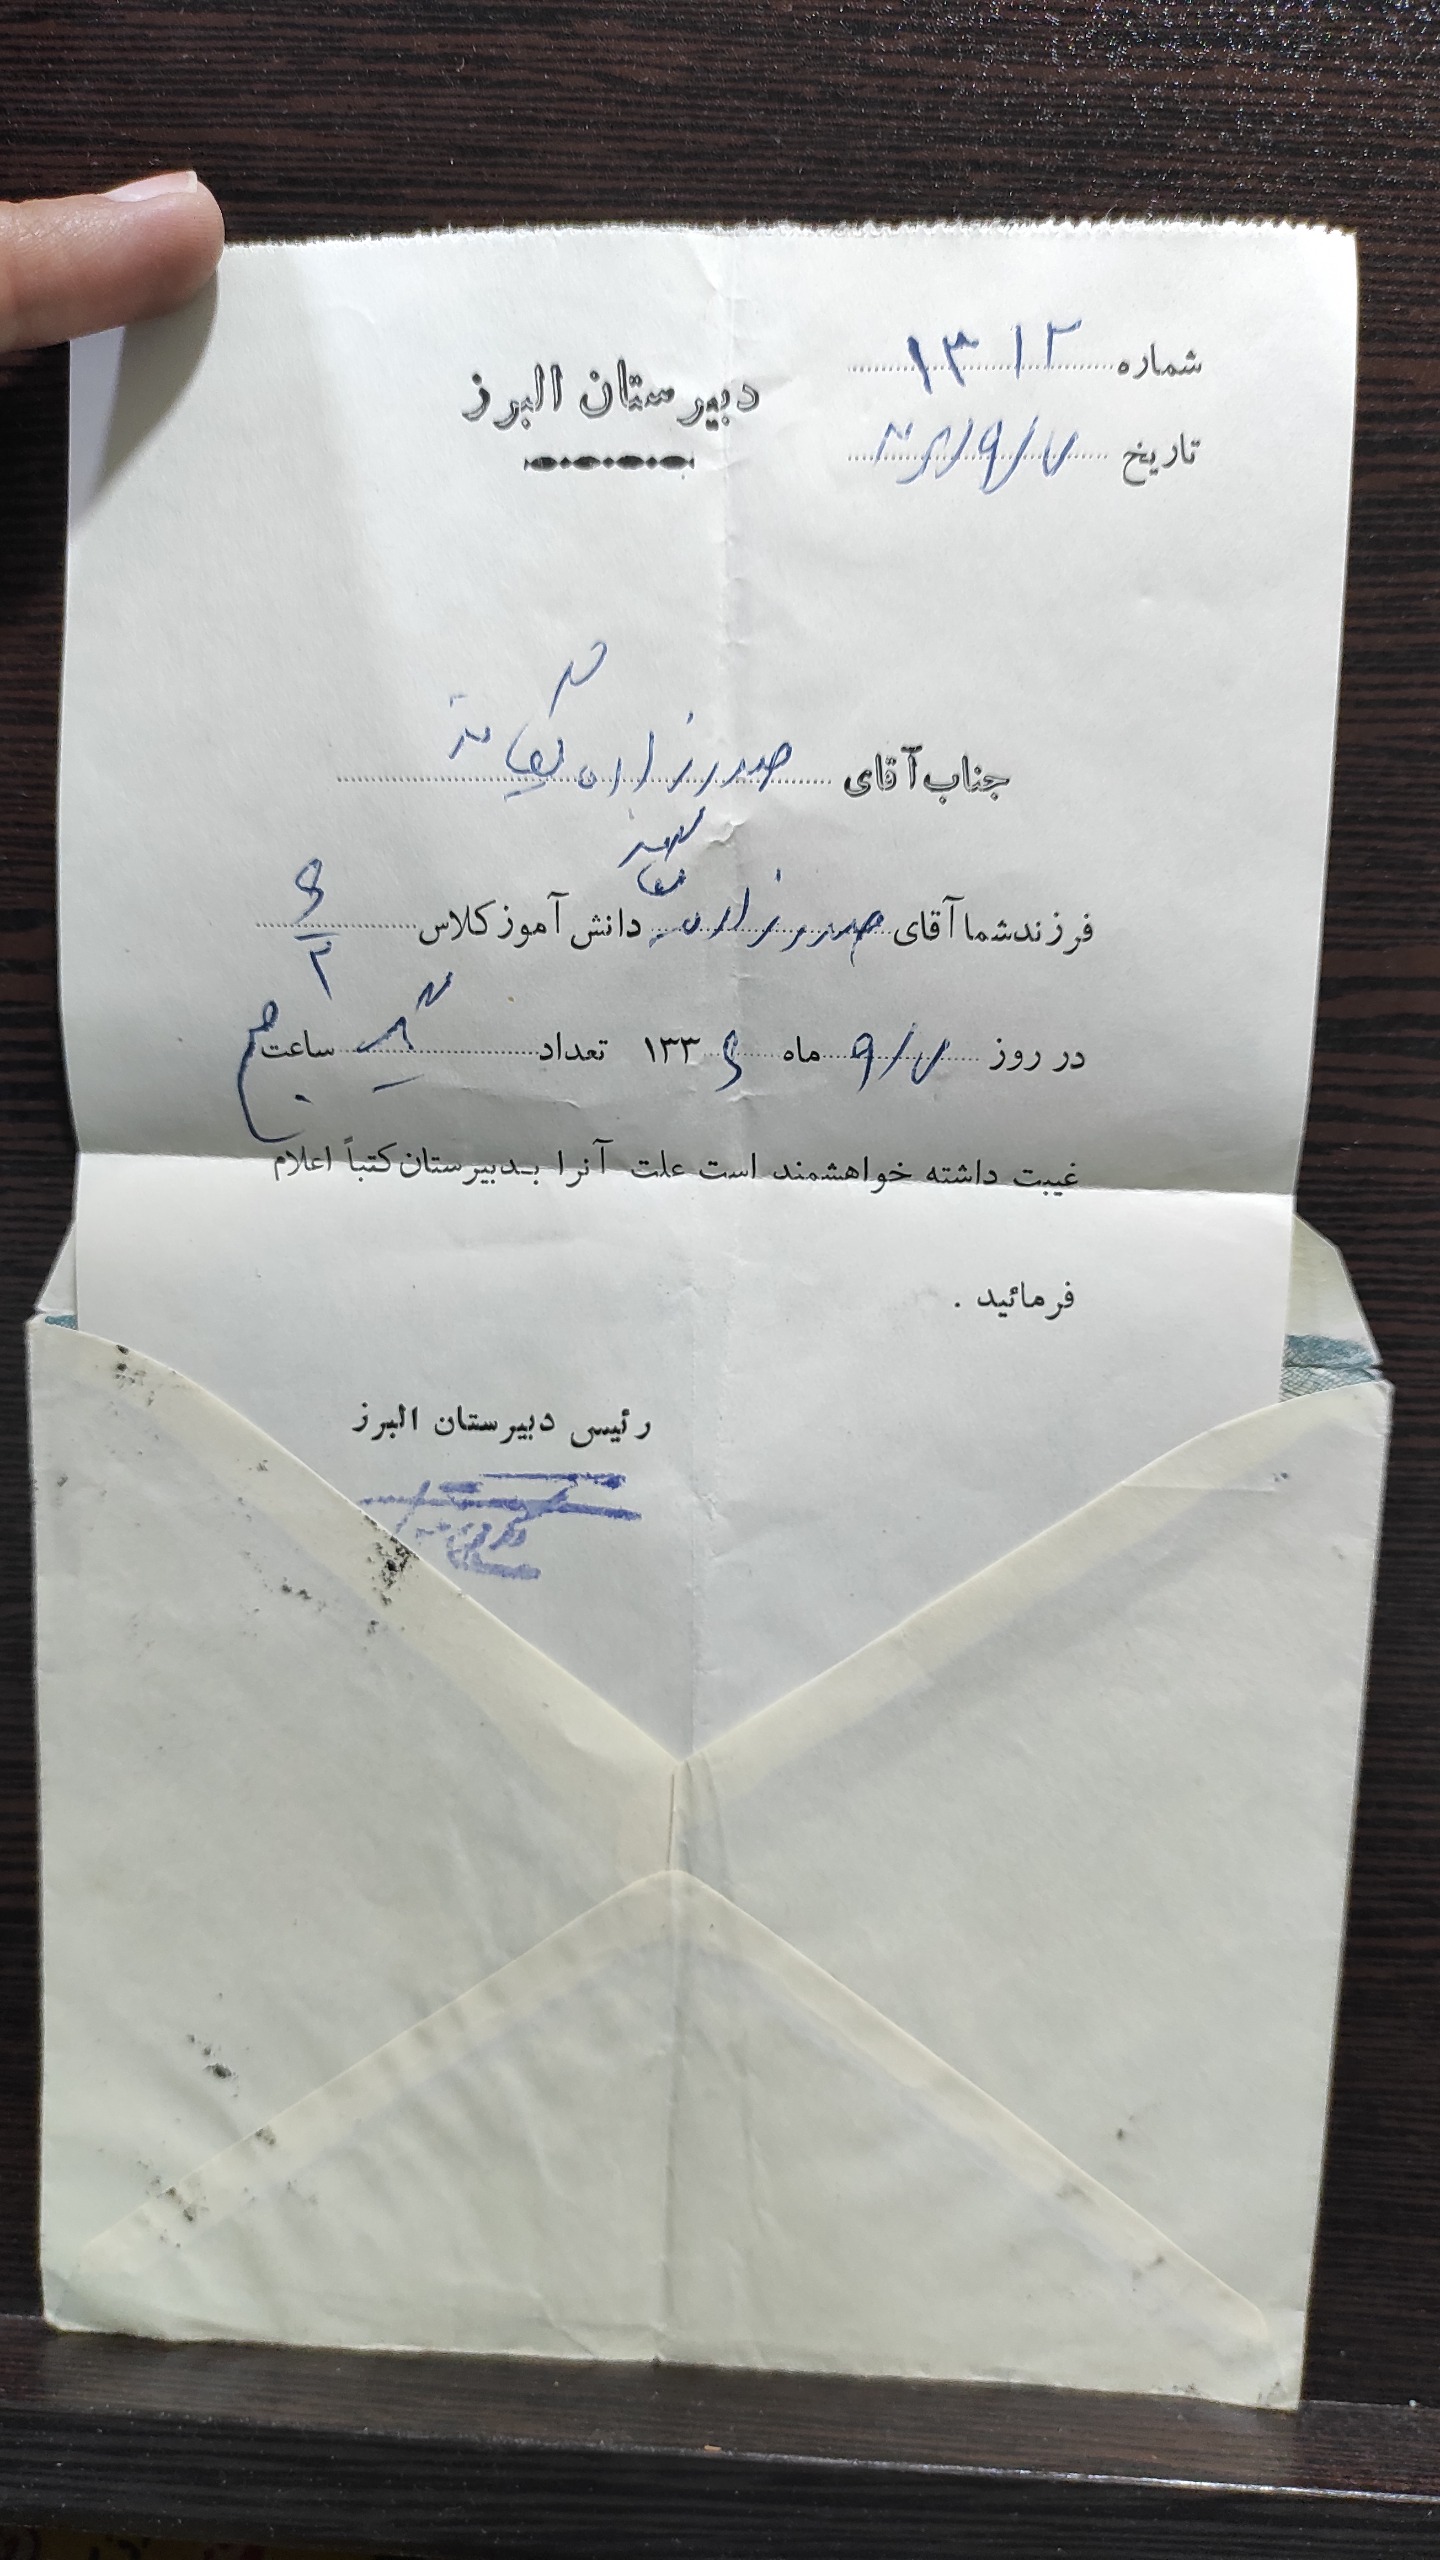 شماره ۱۳۱۲
دبیرستان البرز
تاریخ ۳۶/۹/۷
جناب آقای صدرزاده
فرزند شما آقای صدرزاده دانش آموز کلاس ۶/۲
در روز ۹/۷ ماه ۱۳۳۶ تعداد ساعت صبح
غیبت داشته خواهشمند است علت آنرا بدبیرستان کتباً اعلام
فرمائید .
رئیس دبیرستان البرز